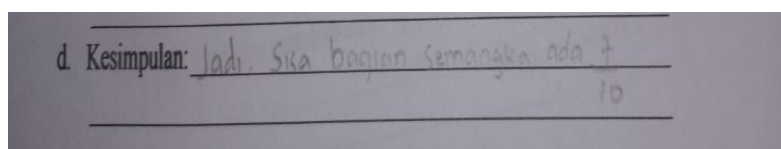 d. Kesimpulan: Jadi, Sisa bagian semangka ada 7
10